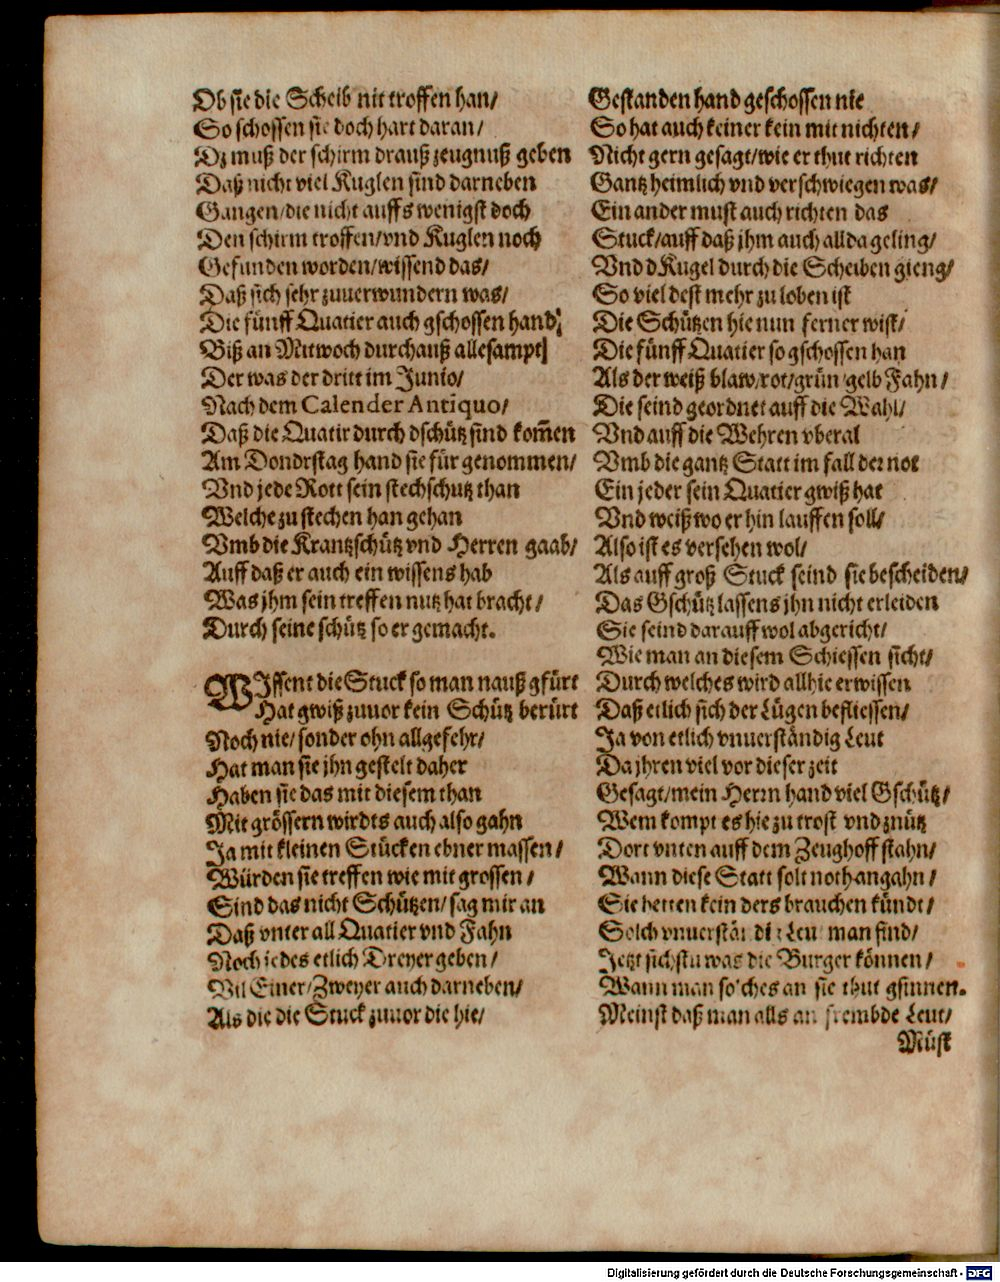 Ob sie die Scheib nit troffen han/
So schossen sie doch hart daran/
Dz muß der schirm drauß zeugnuß geben
Daß nicht viel Kuglen sind darneben
Gangen/die nicht auffs wenigst doch
Den schirm troffen/vnd Kuglen noch
Gefunden worden/wissend das/
Daß sich sehr zuuerwundern was/
Die fünff Quatier auch gschossen hand/
Biß an Mitwoch durchauß allesampt/
Der was der dritt im Junio/
Nach dem Calender Antiquo/
Daß die Quatir durch dschütz sind kom̃en
Am Dondrstag hand sie für genommen/
Vnd jede Rott sein stechschutz than
Welche zu stechen han gehan
Vmb die Krantzschütz vnd Herren gaab/
Auff daß er auch ein wissens hab
Was jhm sein treffen nutz hat bracht/
Durch seine schütz so er gemacht.
WIssent die Stuck so man nauß gfürt
Hat gwiß zuuor kein Schütz berürt
Noch nie/sonder ohn allgefehr/
Hat man sie jhn gestelt daher
Haben sie das mit diesem than
Mit grössern wirdts auch also gahn
Ja mit kleinen Stücken ebner massen/
Würden sie treffen wie mit grossen/
Sind das nicht Schützen/sag mir an
Daß vnter all Quatier vnd Fahn
Noch jedes etlich Dreyer geben/
Vil Einer/Zweyer auch darneben/
Als die die Stuck zuuor die hie/
Gestanden hand geschossen nie
So hat auch keiner kein mit nichten/
Nicht gern gesagt/wie er thut richten
Gantz heimlich vnd verschwiegen was/
Ein ander must auch richten das
Stuck/auff daß jhm auch allda geling/
Vnd dKugel durch die Scheiben gieng/
So viel dest mehr zu loben ist
Die Schützen hie nun ferner wist/
Die fünff Quatier so gschossen han
Als der weiß blaw/rot/grün/gelb Fahn/
Die seind geordnet auff die Wahl/
Vnd auff die Wehren vberal
Vmb die gantz Statt im fall der not
Ein jeder sein Quatier gwiß hat
Vnd weiß wo er hin lauffen soll/
Also ist es versehen wol/
Als auff groß Stuck seind sie bescheiden/
Das Gschütz lassens jhn nicht erleiden
Sie seind darauff wol abgericht/
Wie man an diesem Schiessen sicht/
Durch welches wird allhie erwissen
Daß etlich sich der Lügen befliessen/
Ja von etlich vnuerständig Leut
Da jhren viel vor dieser zeit
Gesagt/mein Herrn hand viel Gschütz/
Wem kompt es hie zu trost vnd znütz
Dort vnten auff dem Zeughoff stahn/
Wann diese Statt solt noth angahn/
Sie hetten kein ders brauchen kündt/
Solch man find/
Jetzt sichstu was die Burger können/
Wann man solches an sie thut gsinnen.
Meinst daß man alls an frembde Leut/
Müst
Digitalisierung gefördert durch die Deutsche Forschungsgemeinschaft - DFG